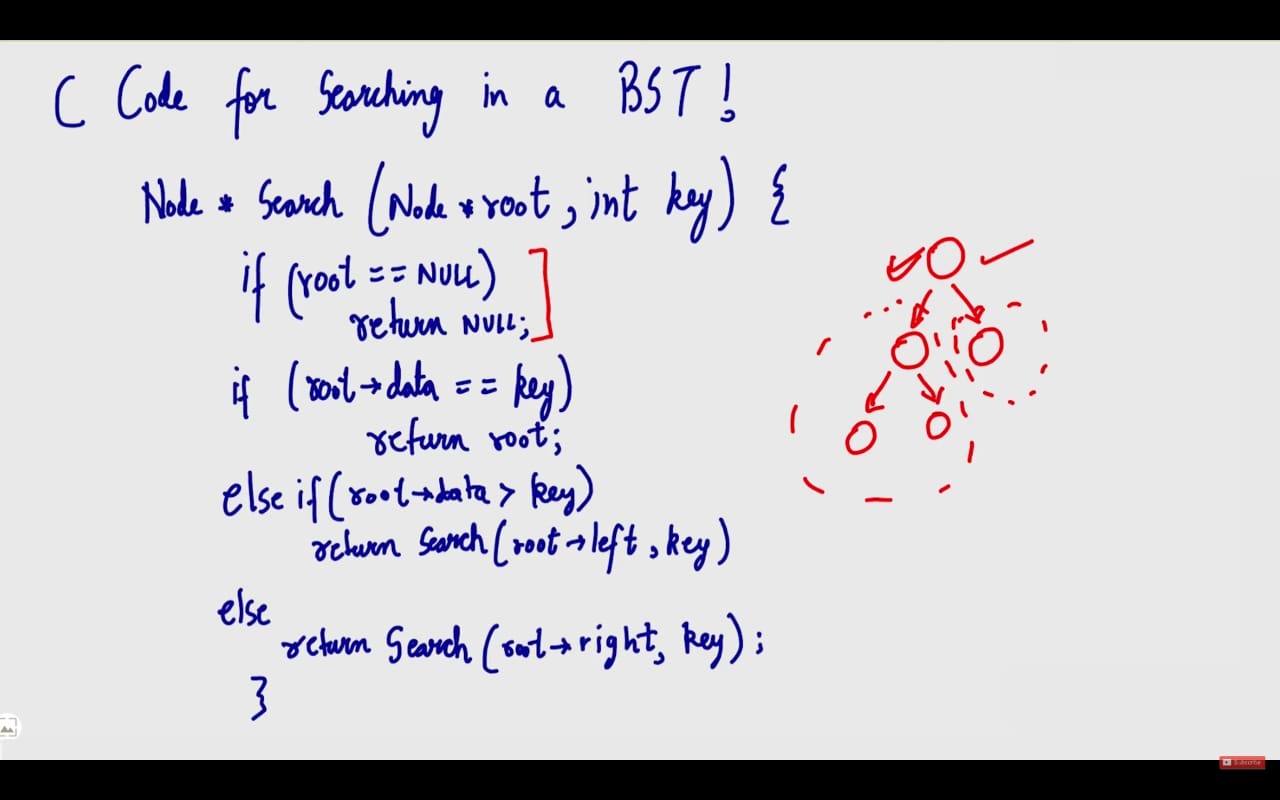 C Code for Searching in a BST!
Node * Search (Node * root, int key) {
if (root == NULL)
return NULL;
if (root→data == key)
return root;
else if (root→data > key)
return Search (root→left, key)
else
return Search (root→right, key);
}
Subscribe